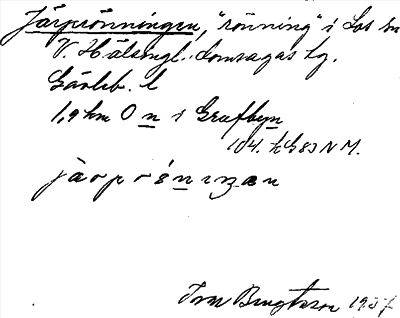 Järprönningen, "rönning" i Los sn
V. Hälsingl. domsagas tg.
Gävleb. l
1,9 km O n i Grafbyn
104. h G 83 N M.
jàrprǿnnıŋən
Ivar Bengtsson 1937